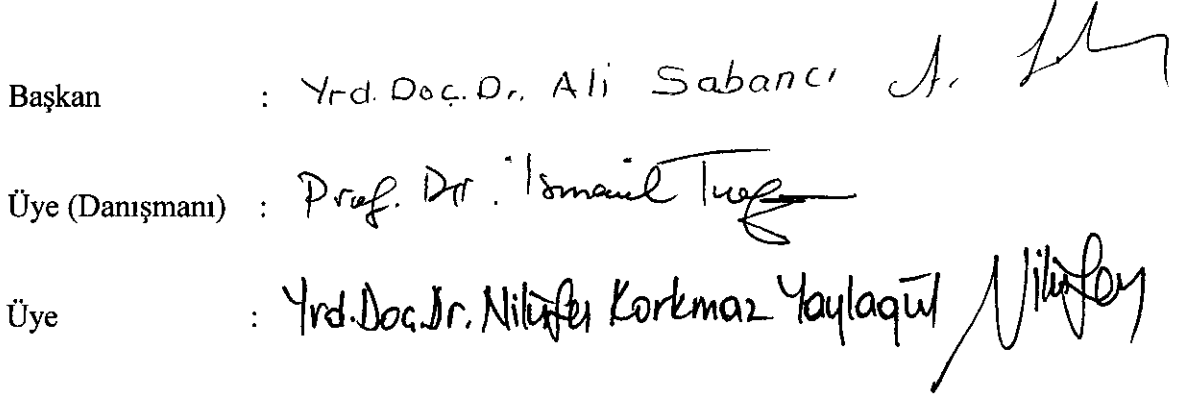 Başkan : Yrd. Doç. Dr. Ali Sabancı A.
Üye (Danışmanı) : Prof. Dr. İsmail
Üye : Yrd. Doç. Dr. Nilüfer Korkmaz Yaylagül Nilüfer